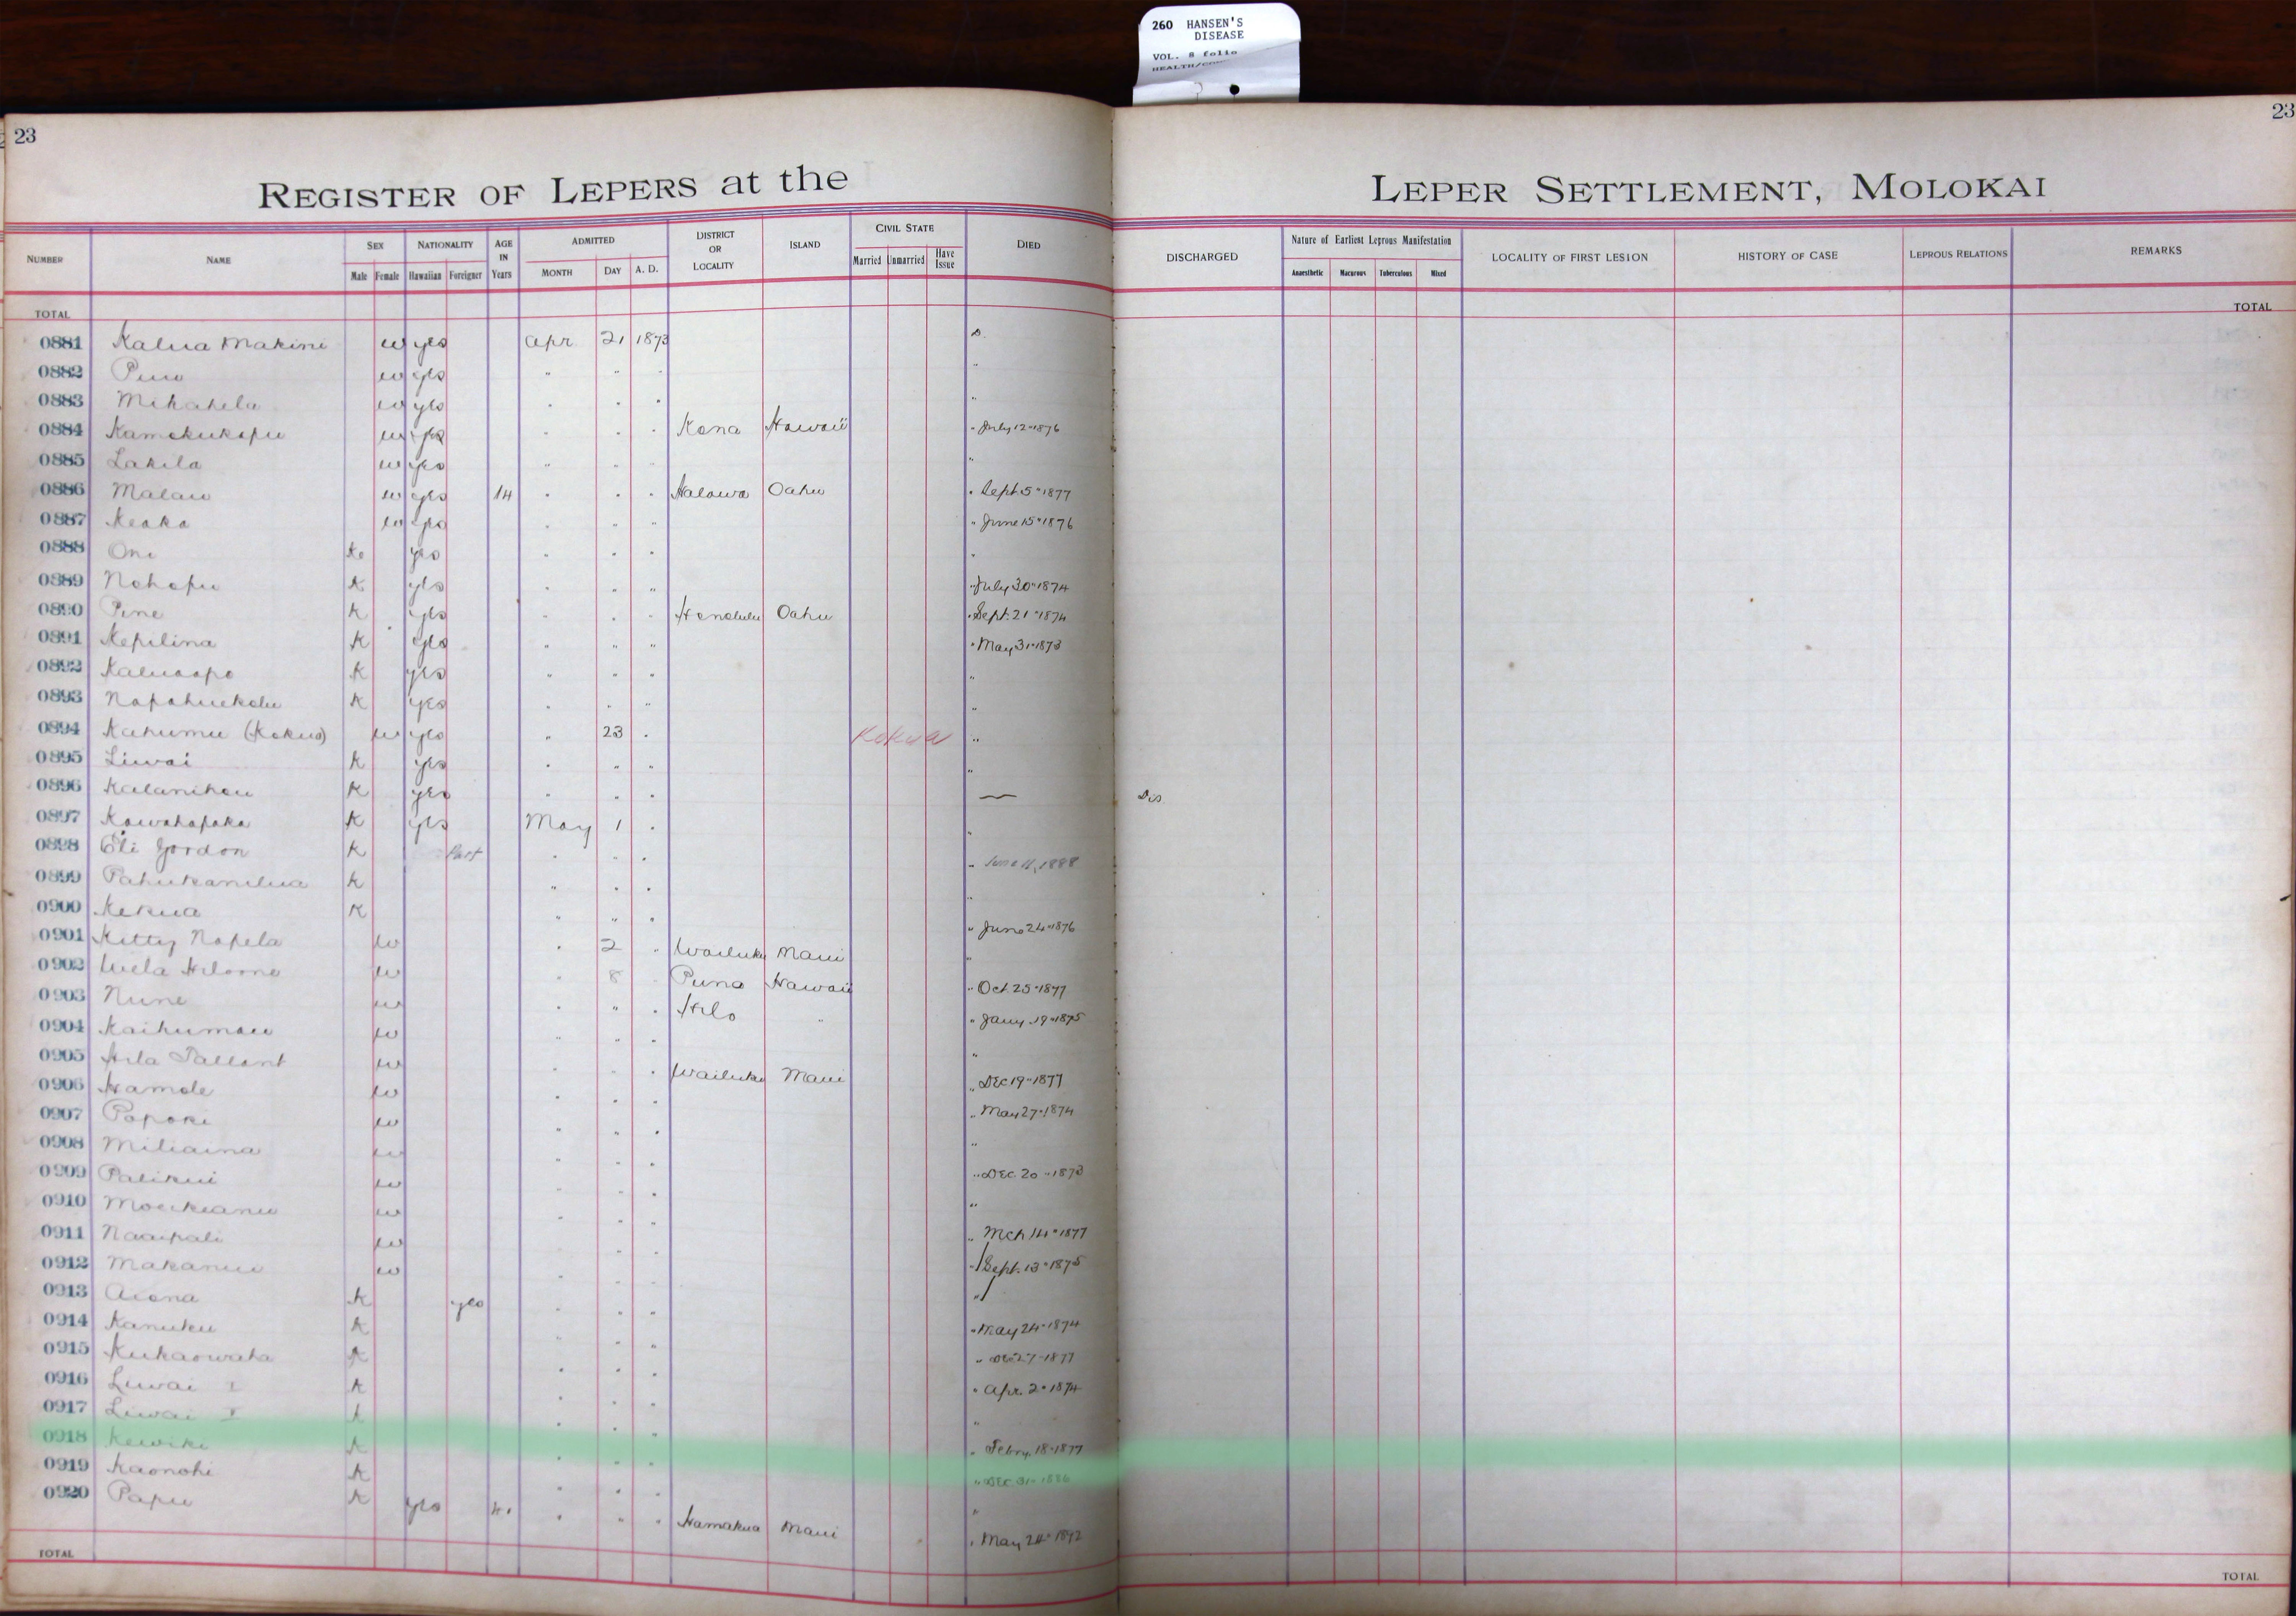 260 HANSEN'S
DISEASE
VOL. 8 folio
23
23
REGISTER OF LEPERS at the LEPER SETTLEMENT, MOLOKAI
NUMBER NAME SEX NATIONALITY AGE IN Years ADMITTED DISTRICT OR LOCALITY ISLAND CIVIL STATE DIED DISCHARGED Nature of Earliest Leprous Manifestation LOCALITY OF FIRST LESION HISTORY OF CASE LEPROUS RELATIONS REMARKS
Male Female Hawaiian Foreigner MONTH DAY A. D. Married Unmarried Have Issue Anaesthetic Macurous Tuberculous Mixed
TOTAL TOTAL
0881 Kalua Makini w yes Apr 21 1873 D.
0882 w yes " " " "
0883 Mikahela w yes " " " "
0884 Kamokukapu w yes " " " Kona Hawaii " July 12 " 1876
0885 Lakila w yes " " " "
0886 Malau w yes 14 " " " Halawa Oahu " Sept. 5 " 1877
0887 Keaka w yes " " " " June 15 " 1876
0888 Oni K yes " " " "
0889 Nohopu K yes " " " " July 30 " 1874
0890 Pine K yes " " " Honolulu Oahu " Sept. 21 " 1874
0891 Kepilina K yes " " " " May 31 " 1873
0892 K yes " " " "
0893 Napahuekolu K yes " " " "
0894 Kahumu (Kokua) w yes " 23 " Kokua "
0895 Liwai K yes " " " "
0896 Kalanihou K yes " " " — Dis
0897 Kawahapaka K yes May 1 " "
0898 Eli Gordon K Part " " " " June 11, 1888
0899 Pahukanilua K " " " "
0900 Kekua K " " " " June 24 " 1876
0901 Kitty Napela w " 2 " Wailuku Maui "
0902 w " 8 " Puna Hawaii " Oct. 25 " 1877
0903 Nune w " " " Hilo " " Jany. 19 " 1875
0904 Kaihumau w " " " "
0905 Hila w " " " Wailuku Maui " Dec 19 " 1877
0906 Hamole w " " " " May 27 " 1874
0907 Papoki w " " " "
0908 Miliaina w " " " " Dec. 20 " 1873
0909 Palikui w " " " "
0910 w " " " " Mch 14 " 1877
0911 Naaipali w " " " " Sept. 13 " 1875
0912 w " " " "
0913 Aiona K yes " " " " May 24 " 1874
0914 Kanuku K " " " 27 " 1877
0915 K " " " " Apr. 2 " 1874
0916 Liwai I K " " " "
0917 Liwai K " " " " Febry. 18 " 1877
0918 Kewiki K " " " " Dec 31 " 1886
0919 Kaonohi K " " " "
0920 Papu K yes " " " Hamakua Maui " May 24 " 1892
TOTAL TOTAL